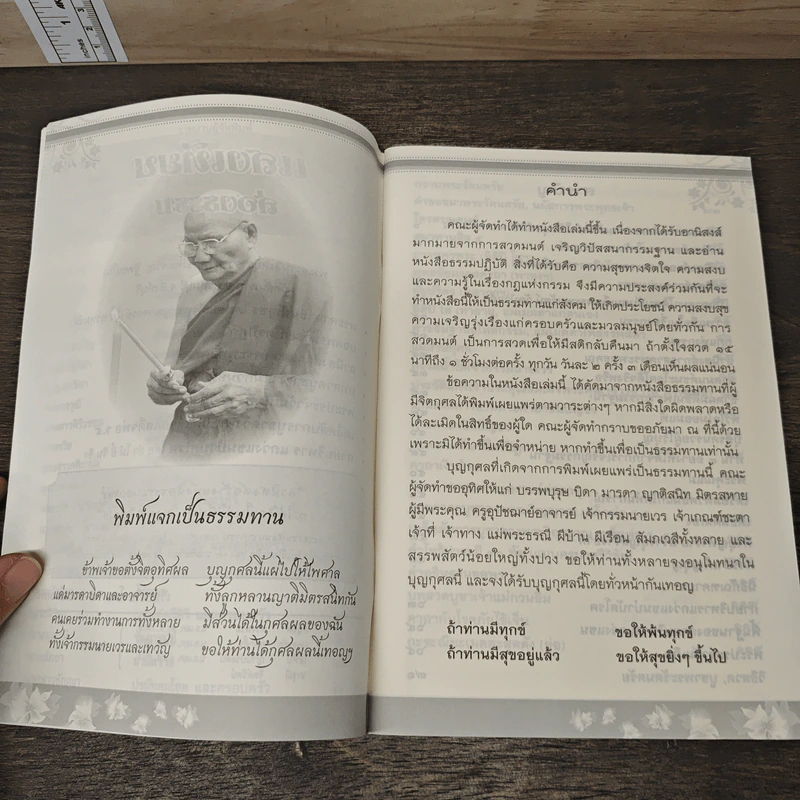 พิมพ์แจกเป็นธรรมทาน
ข้าพเจ้าขอตั้งจิตอุทิศผล บุญกุศลนี้แผ่ไปให้ไพศาล
แด่มารดาบิดาและอาจารย์ ทั้งลูกหลานญาติมิตรสนิทกัน
คนเคยร่วมทำงานการทั้งหลาย มีส่วนได้ในกุศลผลของฉัน
ทั้งเจ้ากรรมนายเวรและเทวัญ ขอให้ท่านได้กุศลผลนี้เทอญฯ
คำนำ
คณะผู้จัดทำได้ทำหนังสือเล่มนี้ขึ้น เนื่องจากได้รับอานิสงส์
มากมายจากการสวดมนต์ เจริญวิปัสสนากรรมฐาน และอ่าน
หนังสือธรรมปฏิบัติ สิ่งที่ได้รับคือ ความสุขทางจิตใจ ความสงบ
และความรู้ในเรื่องกฎแห่งกรรม จึงมีความประสงค์ร่วมกันที่จะ
ทำหนังสือนี้ให้เป็นธรรมทานแก่สังคม ให้เกิดประโยชน์ ความสงบสุข
ความเจริญรุ่งเรืองแก่ครอบครัวและมวลมนุษย์โดยทั่วกัน การ
สวดมนต์ เป็นการสวดเพื่อให้มีสติกลับคืนมา ถ้าตั้งใจสวด ๑๕
นาทีถึง ๑ ชั่วโมงต่อครั้ง ทุกวัน วันละ ๒ ครั้ง ๓ เดือนเห็นผลแน่นอน
ข้อความในหนังสือเล่มนี้ ได้คัดมาจากหนังสือธรรมทานที่ผู้
มีจิตกุศลได้พิมพ์เผยแพร่ตามวาระต่างๆ หากมีสิ่งใดผิดพลาดหรือ
ได้ละเมิดในสิทธิ์ของผู้ใด คณะผู้จัดทำกราบขออภัยมา ณ ที่นี้ด้วย
เพราะมิได้ทำขึ้นเพื่อจำหน่าย หากทำขึ้นเพื่อเป็นธรรมทานเท่านั้น
บุญกุศลที่เกิดจากการพิมพ์เผยแพร่เป็นธรรมทานนี้ คณะ
ผู้จัดทำขออุทิศให้แก่ บรรพบุรุษ บิดา มารดา ญาติสนิท มิตรสหาย
ผู้มีพระคุณ ครูอุปัชฌาย์อาจารย์ เจ้ากรรมนายเวร เจ้าเกณฑ์ชะตา
เจ้าที่ เจ้าทาง แม่พระธรณี ผีบ้าน ผีเรือน สัมภเวสีทั้งหลาย และ
สรรพสัตว์น้อยใหญ่ทั้งปวง ขอให้ท่านทั้งหลายจงอนุโมทนาใน
บุญกุศลนี้ และจงได้รับบุญกุศลนี้โดยทั่วหน้ากันเทอญ
ถ้าท่านมีทุกข์ ขอให้พ้นทุกข์
ถ้าท่านมีสุขอยู่แล้ว ขอให้สุขยิ่งๆ ขึ้นไป